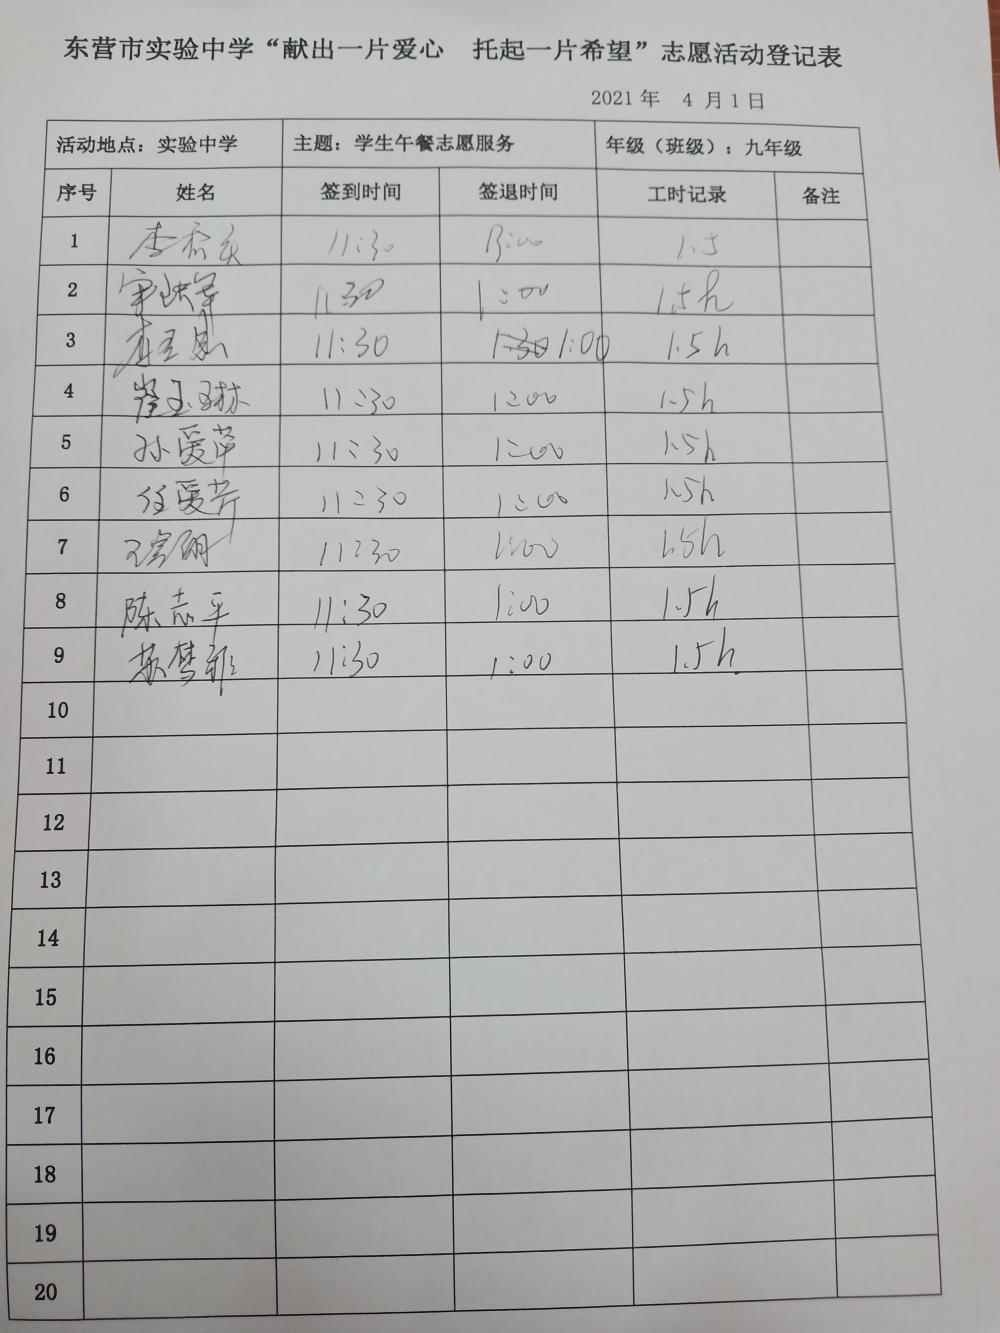 东营市实验中学“献出一片爱心 托起一片希望”志愿活动登记表
2021 年 4 月 1 日
活动地点：实验中学 主题：学生午餐志愿服务 年级（班级）：九年级
序号 姓名 签到时间 签退时间 工时记录 备注
1 11:30 13:00 1.5
2 11:30 1:00 1.5h
3 11:30 1:00 1.5h
4 崔玉琳 11:30 1:00 1.5h
5 孙爱萍 11:30 1:00 1.5h
6 任爱芹 11:30 1:00 1.5h
7 11:30 1:00 1.5h
8 陈志平 11:30 1:00 1.5h
9 苏梦雅 11:30 1:00 1.5h
10
11
12
13
14
15
16
17
18
19
20